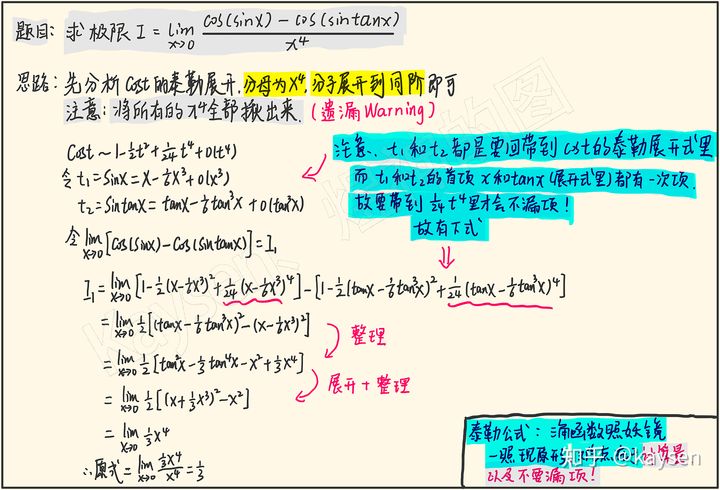 题目: 求极限 I = lim x→0 cos(sinx) - cos(sintanx) / x⁴
思路: 先分析 cost 的泰勒展开, 分母为 x⁴, 分子展开到同阶即可
注意: 将所有的 x⁴ 全部揪出来. (遗漏 Warning)
cost ~ 1 - ½t² + 1/24 t⁴ + o(t⁴)
令 t₁ = sinx = x - ⅙x³ + o(x³)
t₂ = sintanx = tanx - ⅙tan³x + o(tan³x)
注意、t₁ 和 t₂ 都是要回带到 cost 的泰勒展开式里
而 t₁ 和 t₂ 的首项 x 和 tanx (展开式里) 都有一次项.
故要带到 1/24 t⁴ 里才会不漏项!
故有下式
令 lim x→0 [cos(sinx) - cos(sintanx)] = I₁
I₁ = lim x→0 [1 - ½(x - ⅙x³)² + 1/24 (x - ⅙x³)⁴] - [1 - ½(tanx - ⅙tan³x)² + 1/24 (tanx - ⅙tan³x)⁴]
= lim x→0 ½[(tanx - ⅙tan³x)² - (x - ⅙x³)²]
整理
= lim x→0 ½[tan²x - ⅓tan⁴x - x² + ⅓x⁴]
展开 + 整理
= lim x→0 ½[(x + ⅓x³)² - x²]
= lim x→0 ⅓x⁴
∴ 原式 = lim x→0 ⅓x⁴ / x⁴ = ⅓
泰勒公式: 函数照妖镜
一照现原形
以及不要漏项!
知乎 @kaysen